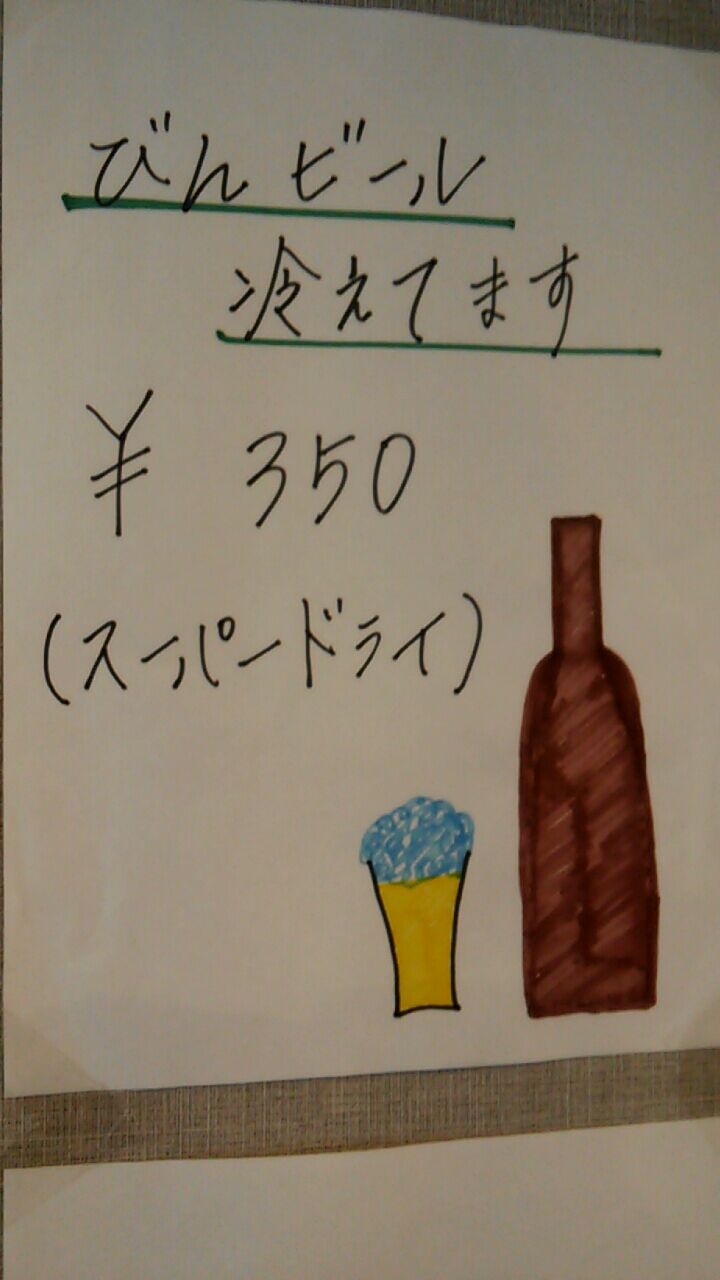 びんビール
冷えてます
¥ 350
(スーパードライ)